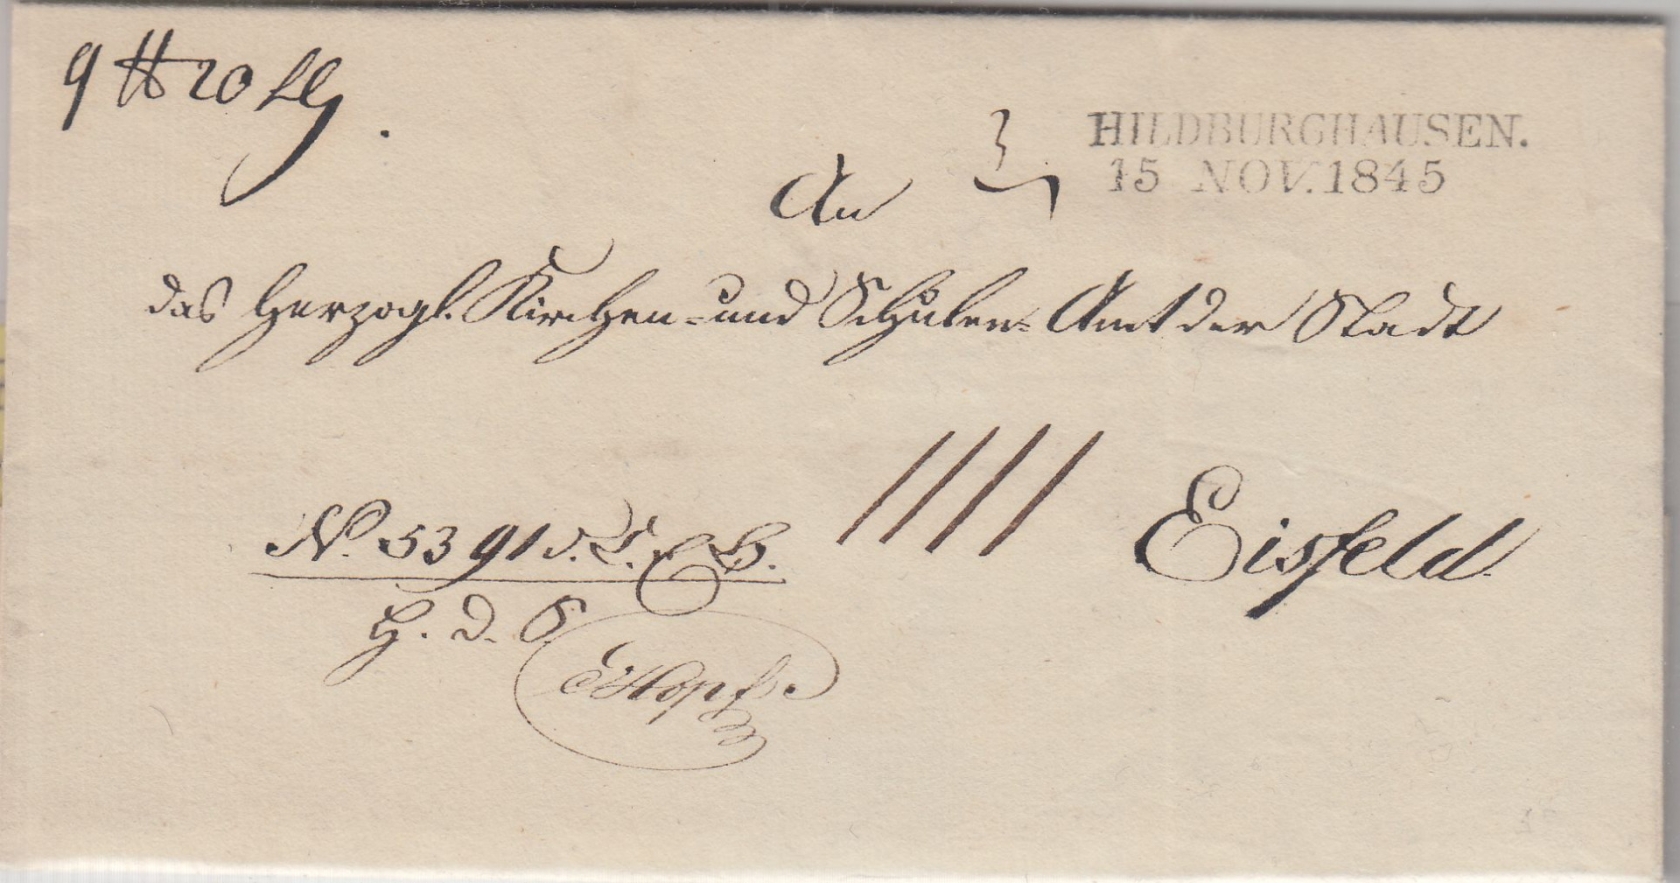 9 ℔ 20 Lth.
HILDBURGHAUSEN.
15 NOV. 1845
An
das Herzogl. Kirchen- und Schulen-Amt der Stadt
Eisfeld.
N. 5391
H. d. S.
Hopf